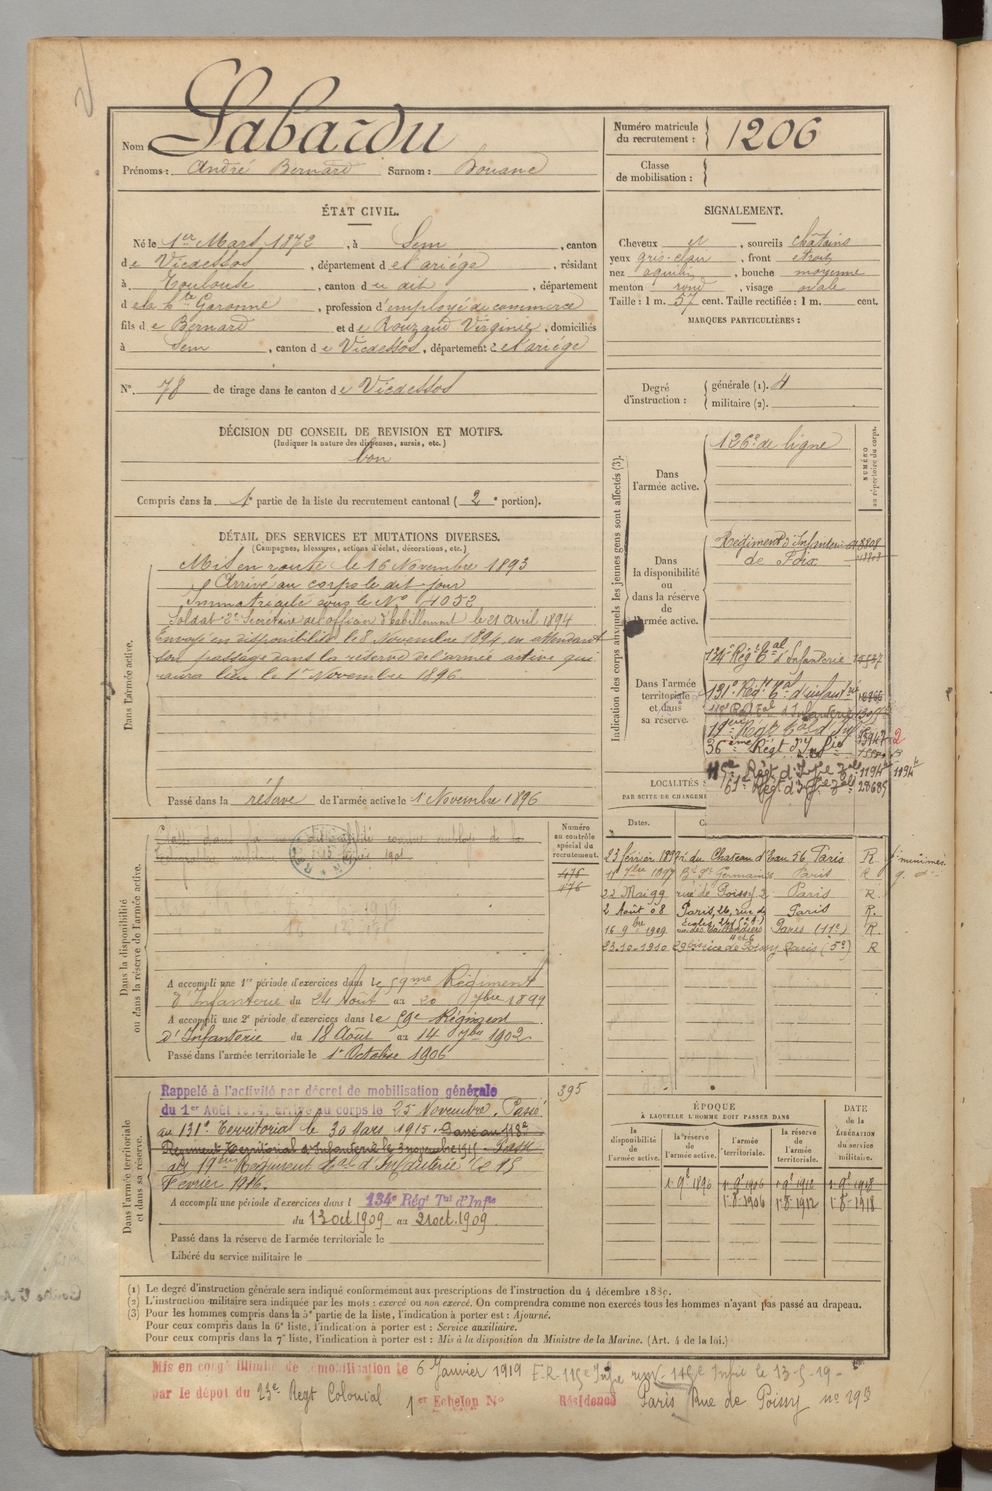 Nom : Labardu
Prénoms : André Bernard Surnom : Bouane
Numéro matricule du recrutement : 1206
Classe de mobilisation :
ÉTAT CIVIL.
Né le 1er Mars 1872, à Sem, canton
de Vicdessos, département de l'ariége, résidant
à Toulouse, canton du dit, département
de la Hte Garonne, profession d'employé de commerce
fils de Bernard et de Rouzaud Virginie, domiciliés
à Sem, canton de Vicdessos, département de l'ariége
N° 78 de tirage dans le canton de Vicdessos
SIGNALEMENT.
Cheveux et, sourcils châtains
yeux gris-clair, front étroit
nez aquilin, bouche moyenne
menton rond, visage ovale
Taille : 1 m. 57 cent. Taille rectifiée : 1 m. cent.
MARQUES PARTICULIÈRES :
Degré d'instruction : générale (1). 4
militaire (2).
DÉCISION DU CONSEIL DE REVISION ET MOTIFS.
(Indiquer la nature des dispenses, sursis, etc.)
bon
Compris dans la 1e partie de la liste du recrutement cantonal ( 2e portion).
DÉTAIL DES SERVICES ET MUTATIONS DIVERSES.
(Campagnes, blessures, actions d'éclat, décorations, etc.)
Dans l'armée active.
Mis en route le 16 Novembre 1893
Arrivé au corps le dit jour
Immatriculé sous le N° 4052
Soldat 2e Secrétaire de l'officier d'habillement le 21 avril 1894
Envoyé en disponibilité le 8 Novembre 1894 en attendant
son passage dans la réserve de l'armée active qui
aura lieu le 1er Novembre 1896
Passé dans la réserve de l'armée active le 1 Novembre 1896
Indication des corps auxquels les jeunes gens sont affectés (3).
NUMÉRO au répertoire du corps.
Dans l'armée active.
126e de ligne
Dans la disponibilité ou dans la réserve de l'armée active.
Régiment d'Infanterie
de Foix
Dans l'armée territoriale et dans sa réserve.
134e Régt Tal d'Infanterie
131e Régt Tal d'infanterie
19ème Régt Tal d'Inf
36ème Régt d'Infie
115e Régt d'Infie Tal 1194
61e Régt d'Infie Tal 28685
LOCALITÉS
PAR SUITE DE CHANGEM
Dates.
23 février 1897 r. du Chateau d'Eau 56 Paris R
11 7bre 1897 Bd St Germain Paris R
22 Mai 99 rue de Poissy 2 Paris R.
2 Août 08 Paris, 26, rue de Paris R.
16 9bre 1909 Paris (11e) R.
23.10.1910 29 rue de Poissy Paris (5e) R
Dans la disponibilité ou dans la réserve de l'armée active.
Numéro au contrôle spécial du recrutement.
476
A accompli une 1re période d'exercices dans le 59me Régiment
d'Infanterie du 24 Août au 20 7bre 1899
A accompli une 2e période d'exercices dans le 59e Régiment
d'Infanterie du 18 Août au 14 7bre 1902
Passé dans l'armée territoriale le 1er Octobre 1906
Dans l'armée territoriale et dans sa réserve.
395
Rappelé à l'activité par décret de mobilisation générale
du 1er Août 1914, arrivé au corps le 25 Novembre. Passé
au 131e Territorial le 30 Mars 1915. Passé au 118e
Régiment Territorial d'Infanterie le 3 novembre 1915. Passé
au 19ème Régiment Tal d'Infanterie le 15
Février 1916.
A accompli une période d'exercices dans l 134e Régt Tal d'Infie
du 13 oct. 1909 au 21 oct. 1909
Passé dans la réserve de l'armée territoriale le
Libéré du service militaire le
ÉPOQUE
À LAQUELLE L'HOMME DOIT PASSER DANS
la disponibilité de l'armée active.
la réserve de l'armée active.
l'armée territoriale.
la réserve de l'armée territoriale.
DATE de la LIBÉRATION du service militaire.
1. 9e 1896 1. 9e 1906 1. 9e 1912 1. 9e 1918
1. 8. 1906 1. 8. 1912 1. 8. 1918
(1) Le degré d'instruction générale sera indiqué conformément aux prescriptions de l'instruction du 4 décembre 1889.
(2) L'instruction militaire sera indiquée par les mots : exercé ou non exercé. On comprendra comme non exercés tous les hommes n'ayant pas passé au drapeau.
(3) Pour les hommes compris dans la 5e partie de la liste, l'indication à porter est : Ajourné.
Pour ceux compris dans la 6e liste, l'indication à porter est : Service auxiliaire.
Pour ceux compris dans la 7e liste, l'indication à porter est : Mis à la disposition du Ministre de la Marine. (Art. 4 de la loi.)
Mis en congé illimité de démobilisation le 6 Janvier 1919 F.R. 115e Infie 115e Infie le 13-5-19-
par le dépot du 23e Regt Colonial 1er Echelon N° Résidence Paris Rue de Poissy no 29